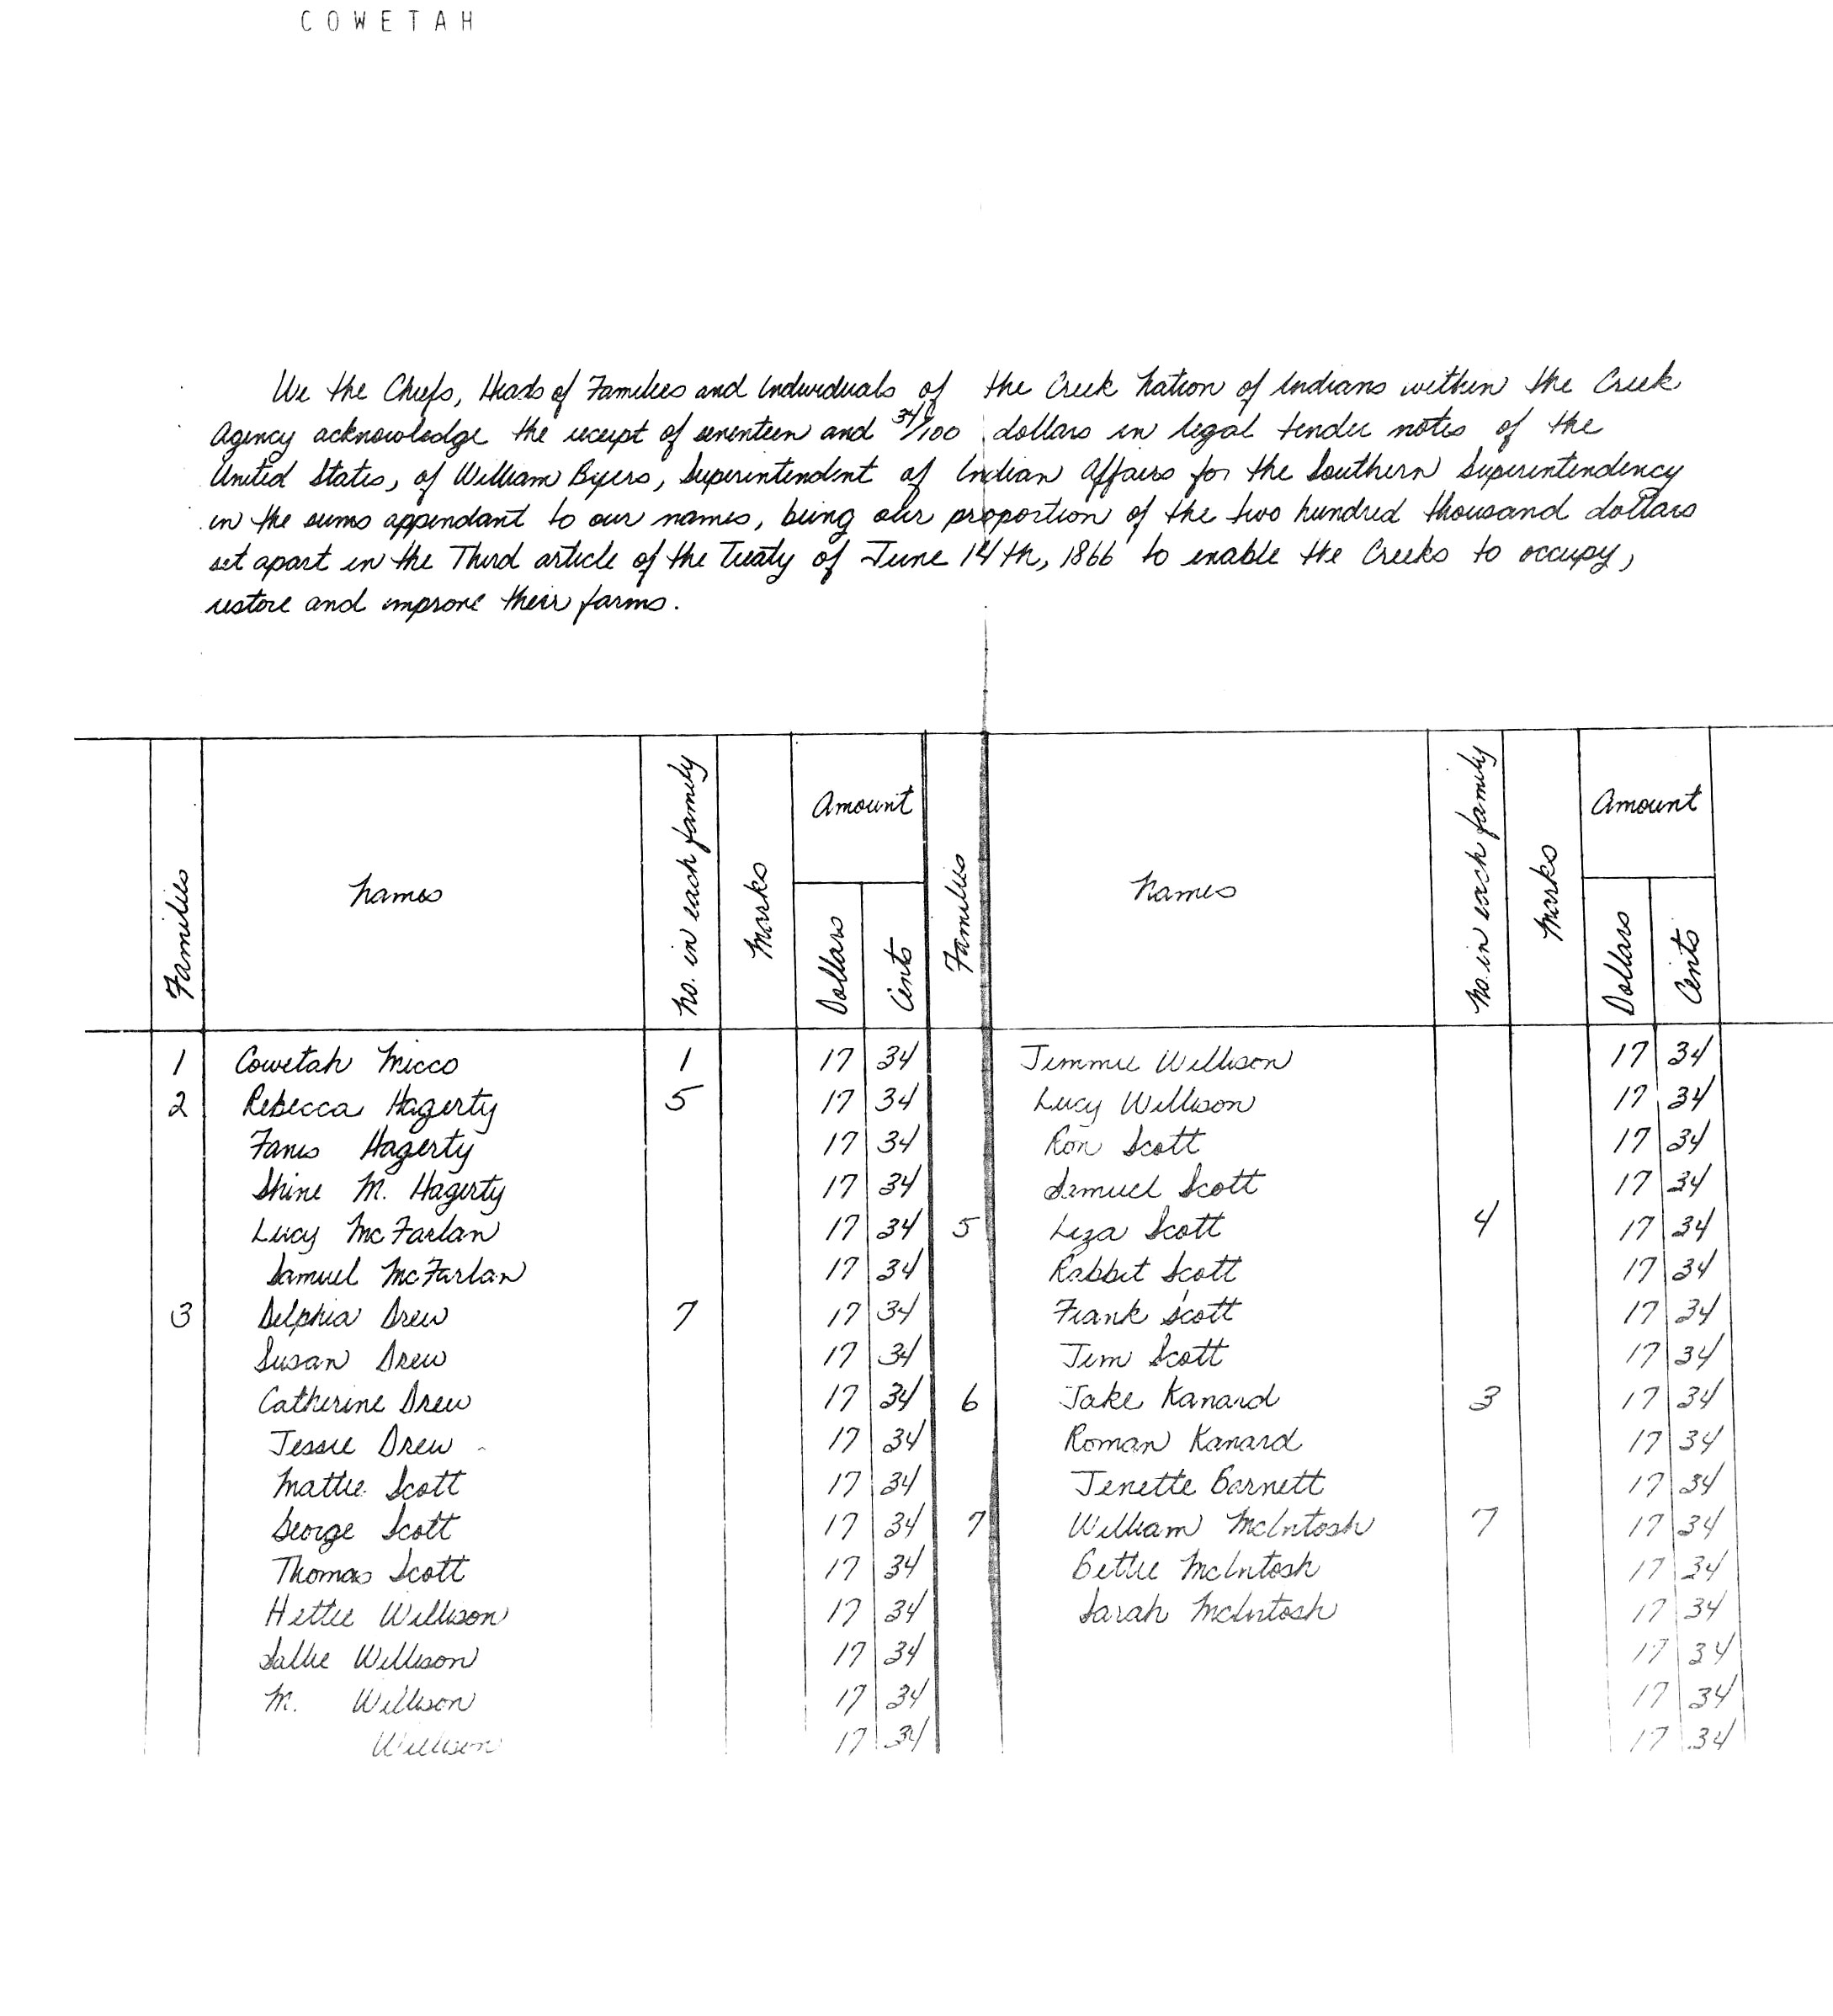 COWETAH
We the Chiefs, Heads of Families and Individuals of the Creek Nation of Indians within the Creek
Agency acknowledge the receipt of seventeen and 34/100 dollars in legal tender notes of the
United States, of William Byers, Superintendent of Indian Affairs for the Southern Superintendency
in the sums appendant to our names, being our proportion of the two hundred thousand dollars
set apart in the Third article of the Treaty of June 14th, 1866 to enable the Creeks to occupy,
restore and improve their farms.
Families Names No. in each family Marks Amount Dollars Cents Families Names No. in each family Marks Amount Dollars Cents
1 Cowetah Micco 1 17 34 Jimmie Willison 17 34
2 Rebecca Hagerty 5 17 34 Lucy Willison 17 34
Fanis Hagerty 17 34 Ron Scott 17 34
Shine M. Hagerty 17 34 Samuel Scott 17 34
Lucy McFarlan 17 34 5 Liza Scott 4 17 34
Samuel McFarlan 17 34 Rabbit Scott 17 34
3 Delphia Drew 7 17 34 Frank Scott 17 34
Susan Drew 17 34 Jim Scott 17 34
Catherine Drew 17 34 6 Jake Kanard 3 17 34
Jessie Drew 17 34 Roman Kanard 17 34
Mattie Scott 17 34 Jenette Barnett 17 34
George Scott 17 34 7 William McIntosh 7 17 34
Thomas Scott 17 34 Bettie McIntosh 17 34
Hettie Willison 17 34 Sarah McIntosh 17 34
Sallie Willison 17 34 17 34
M. Willison 17 34 17 34
Willison 17 34 17 34